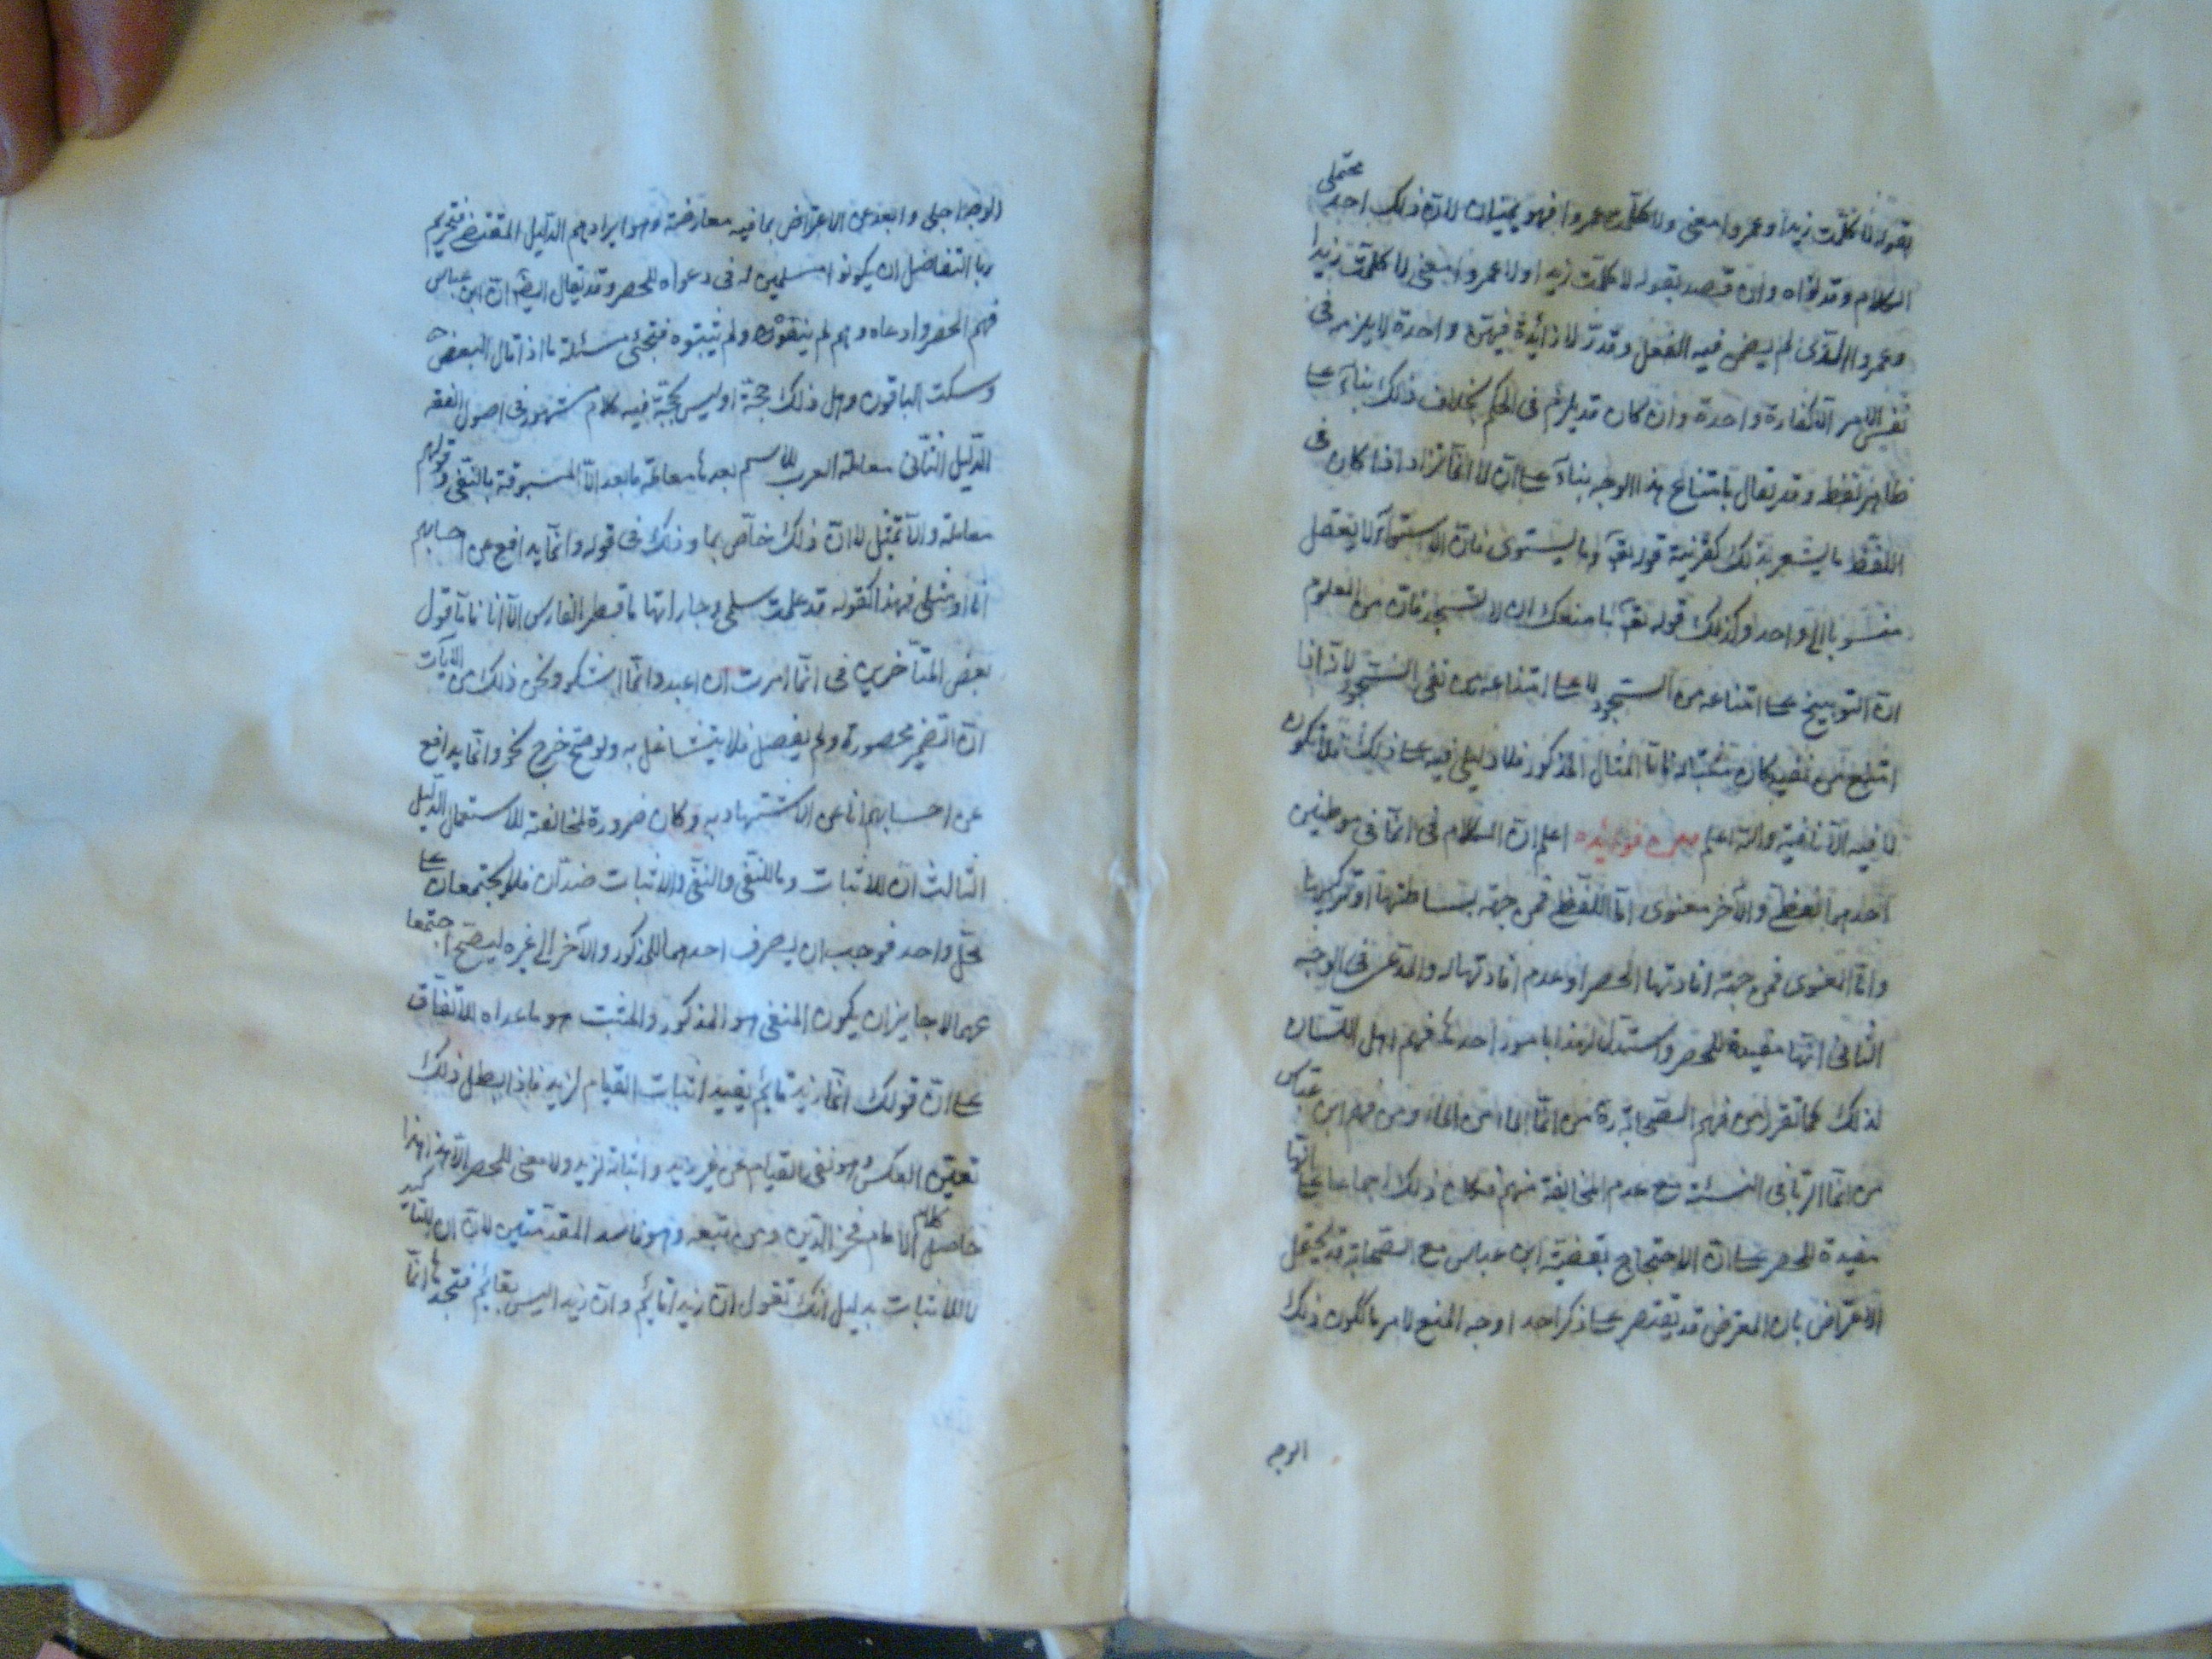 بقوله لا كلّمت زيدا وعمروا معنى ولا كلّمت عمروا فهو يمينان لانّ ذلك احد محتملى
الكلام وقد نواه وان قصد بقوله لا كلّمت زيدا ولا عمروا معنى لا كلّمت زيدا
وعمروا الذى لم يضمر فيه الفعل وقدّر لا زائدة فيمين واحدة لا يلزمه فى
نفس الامر الّا كفارة واحدة وان كان قد يلزم فى الحكم بخلاف ذلك بناء على
ظاهر لفظه وقد يقال بامتناع هذا الوجه بناء على انّ لا انّما تزاد اذا كان فى
اللفظ ما يشعر بذلك كقرينة قوله تع وما يستوى فانّ الاستواء لا يعقل
منسوبا الى واحد وكذلك قوله تع ما منعك ان لا تسجد فان من المعلوم
انّ التوبيخ على امتناعه من السّجود لا على امتناعه من نفى السّجود لانّه اذا
امتنع من نفيه كان مثبتا له فامّا المثال المذكور فلا دليل فيه على ذلك فلا تكون
لا فيه الّا نافية والله اعلم اعلم انّ الكلام فى انّما فى موطنين
احدهما لفظىّ والآخر معنوى امّا اللّفظى فمن جهة بساطتها او تركيبها
وامّا المعنوى فمن جهة افادتها الحصر او عدم افادتها له والمدّعى فى الوجه
الثانى انّها مفيدة للحصر واستدلّ لهذا بامور احدها فهم اهل اللّسان
لذلك كما تقرر من فهم الصّحابة رة من انّما الماء من الماء ومن فهم ابن عبّاس
من انّما الرّبا فى النسئة مع عدم المخالفة منهم فكان ذلك اجماعا على انّها
مفيدة للحصر على انّ الاحتجاج بقضيّة ابن عباس مع الصّحابة قد يحتمل
الاعتراض بان المعترض قد يقتصر على ذكر احد اوجه المنع لامر ما لكون ذلك
الوجه
الوجه اجلى وابعد عن الاعتراض بما فيه معارضة وهو ايرادهم الدّليل المقتضى لتحريم
ربا التفاضل ان يكونوا مسلمين له فى دعواه للحصر وقد يقال ايضا انّ ابن عباس
فهم الحصر وادعاه وهم لم ينفوه ولم يثبتوه فتجئ مسئلة ما اذا قال البعض
وسكت الباقون وهل ذلك حجّة او ليس بحجّة فيه كلام مشهور فى اصول الفقه
الدّليل الثّانى معاملة العرب للاسم بعدها معاملة ما بعد الّا المسبوقة بالنّفى وقولهم
معاملة والّا تمثيل لا انّ ذلك خاصّ بما وذلك فى قوله وانّما يدافع عن احسابهم
انا او مثلى فهذا كقوله قد علمت سلمى وجاراتها ما قطر الفارس الّا انا فامّا قول
بعض المتأخرين فى انّما امرت ان اعبد وانّما اشكو ونحن ذلك من الآيات
انّ الضّمير محصورة ولم يفصل فلا يتشاغل به ولو صحّ خرج نحو وانّما يدافع
عن احسابهم انا عن الاستشهاد به وكان ضرورة لمخالفة للاستعمال الدّليل
الثالث انّ للاثبات وما للنّفى والنّفى والاثبات ضدّان فلا يجتمعان على
محلّ واحد فوجب ان يصرف احدهما للمذكور والآخر الى غيره ليصحّ اجتمعا
عهما لا جايز ان يكون المنفى هو المذكور والمثبت هو ما عداه للاتّفاق
على انّ قولك انّما زيد قائم يفيد اثبات القيام لزيد فاذا بطل ذلك
تعيّن العكس وهو نفى القيام عن غير زيد واثباته لزيد ولا معنى للحصر الّا هذا هذا
حاصل كلام الامام فخر الدّين ومن تبعه وهو فاسد المقدّمتين لانّ ان للتأكيد
لا للاثبات بدليل انّك تقول انّ زيدا قائم وانّ زيدا ليس بقائم فتجدها انّما